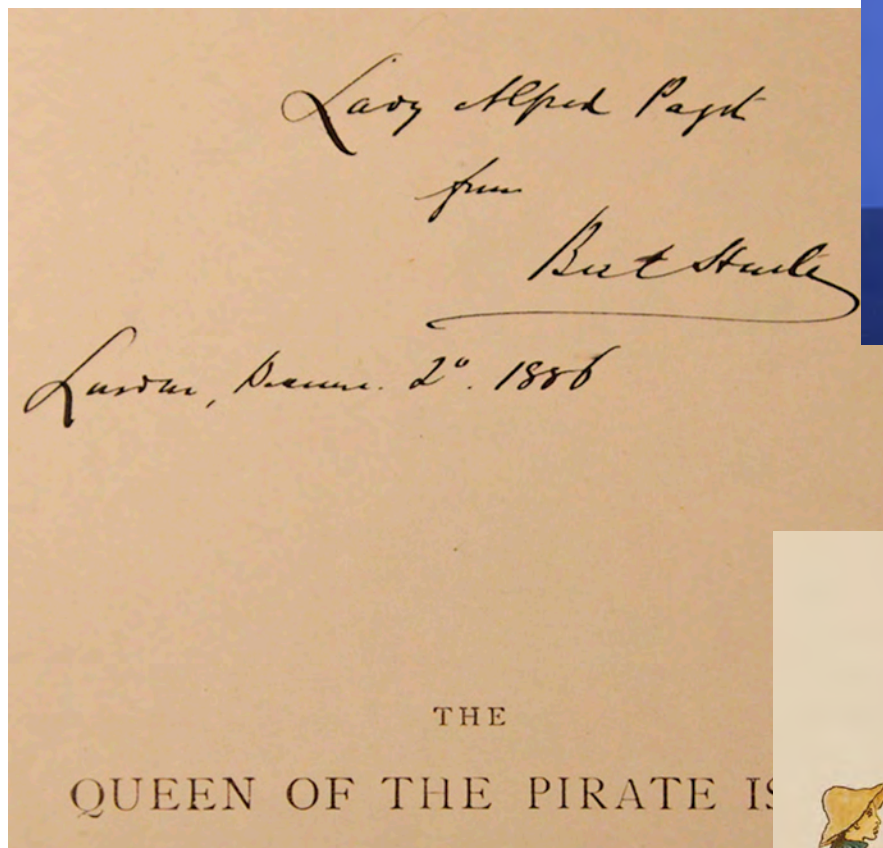 Lady Alfred Paget
from
Bret Harte
London, 2º. 1886
THE
QUEEN OF THE PIRATE IS